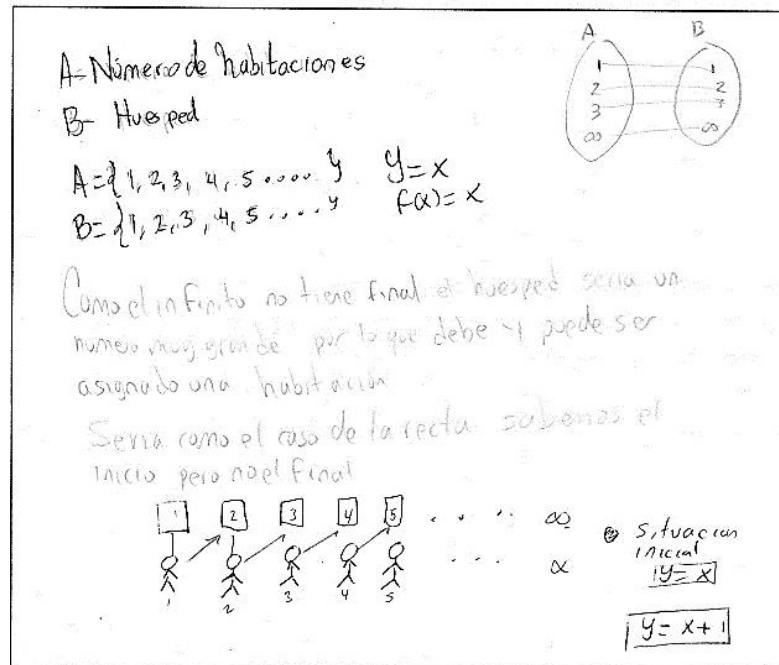 A B
A= Número de habitaciones
B- Huesped
1 1
2 2
3 3
∞ ∞
A={1, 2, 3, 4, 5 ..... } y=x
B={1, 2, 3, 4, 5 ..... } f(x)=x
Como el infinito no tiene final el huesped seria un
numero muy grande por lo que debe y puede ser
asignado una habitación
Seria como el caso de la recta sabemos el
inicio pero no el final
1 2 3 4 5 . . . . ∞
1 2 3 4 5 . . . . ∝
situacion
inicial
y= x
y= x+1